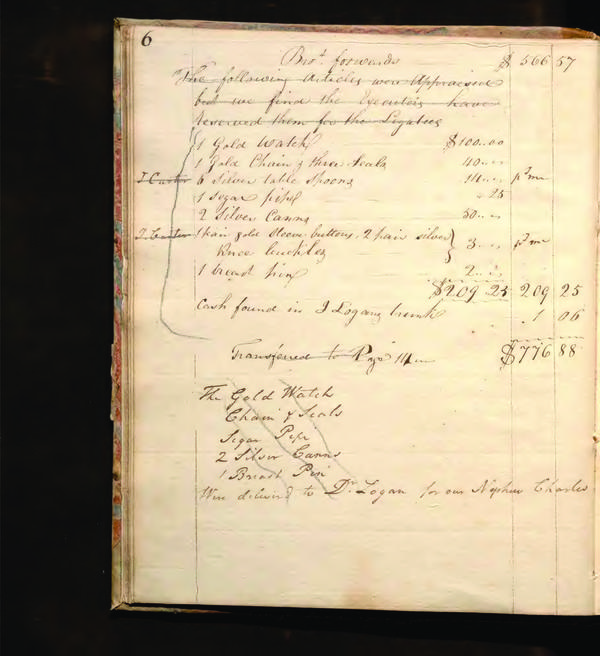 6
Bro.t forwards $ 566 57
The following Articles were Appraised
but we find the Executors have
reserved them for the Legatees
1 Gold Watch $100..00
1 Gold Chain & three Seals 40..
J. Carter 6 Silver table Spoons 14..
1 Segar pipe 25
2 Silver Canns 50..
J. Carter 1 pair gold sleeve buttons, 2 pair silver
Knee buckles } 3..
1 breast pin 2..
$209 25 209 25
Cash found in J Logans trunk 1 06
Transferred to Page 14 $776 88
The Gold Watch
Chain & Seals
Segar Pipe
2 Silver Canns
1 Breast Pin
Were deliver'd to Dr. Logan for our Nephew Charles